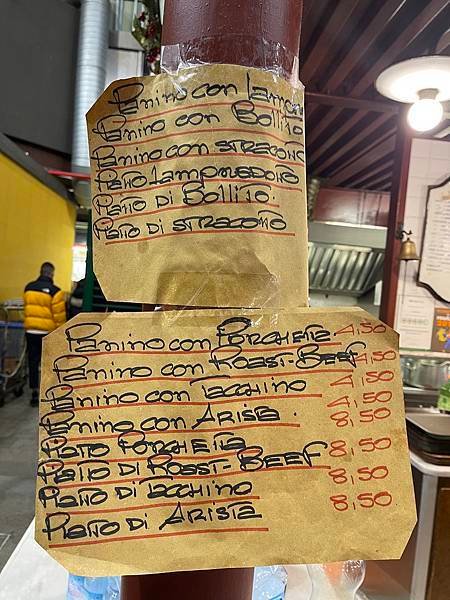 Panino con Lampre
Panino con Bollito
Panino con STRACOTTO
Piatto Lampredotto
Piatto Di Bollito.
Piatto Di STRACOTTO
Panino con PORCHETTA 4,50
Panino con ROAST-BEEF 4,50
Panino con Tacchino 4,50
Panino con ARISTA. 4,50
Piatto PORCHETTA 8,50
Piatto Di ROAST-BEEF 8,50
Piatto Di Tacchino 8,50
Piatto Di ARISTA 8,50